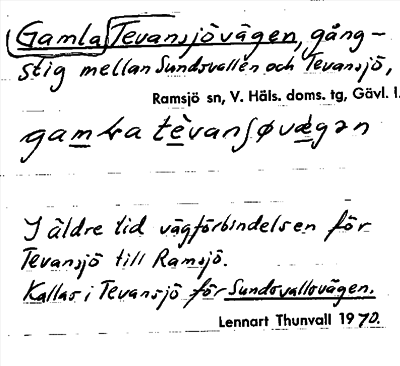 Gamla Tevansjövägen, gång-
stig mellan Sundsvallen och Tevansjö,
Ramsjö sn, V. Häls. doms. tg, Gävl. l.
gamla tèvanʃøvægən
I äldre tid vägförbindelsen för
Tevansjö till Ramsjö.
Kallas i Tevansjö för Sundsvallsvägen.
Lennart Thunvall 1970.